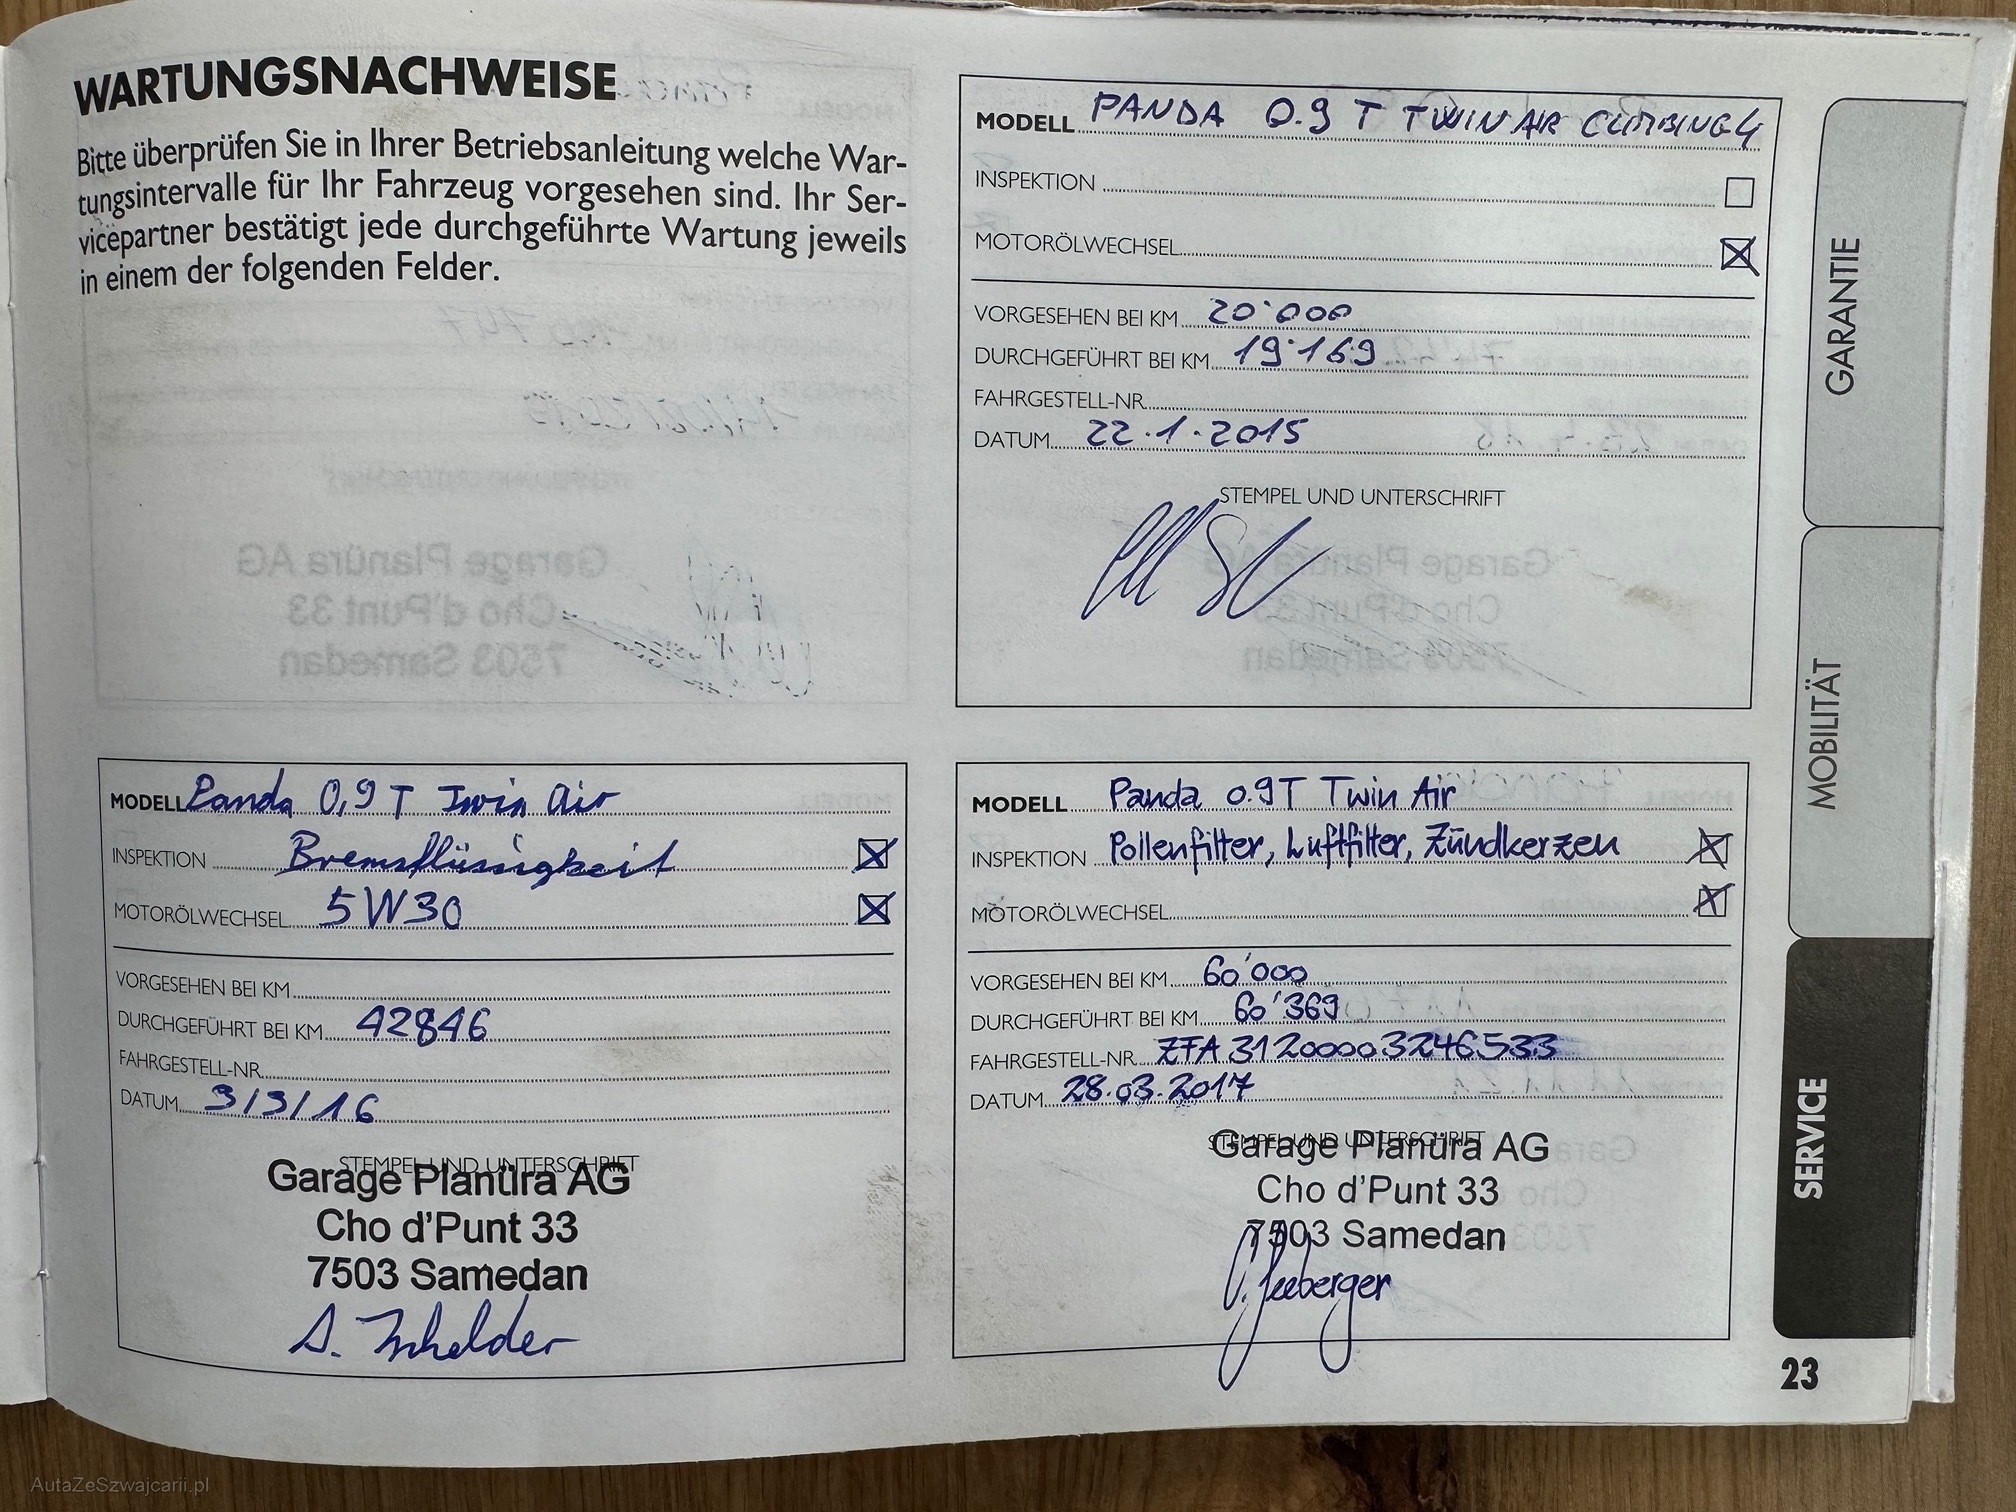 WARTUNGSNACHWEISE
Bitte überprüfen Sie in Ihrer Betriebsanleitung welche War-
tungsintervalle für Ihr Fahrzeug vorgesehen sind. Ihr Ser-
vicepartner bestätigt jede durchgeführte Wartung jeweils
in einem der folgenden Felder.
MODELL PANDA 0.9 T TWIN AIR CLIMBING 4
INSPEKTION
MOTORÖLWECHSEL
VORGESEHEN BEI KM 20'000
DURCHGEFÜHRT BEI KM 19'169
FAHRGESTELL-NR.
DATUM 22.1.2015
STEMPEL UND UNTERSCHRIFT
MODELL Panda 0,9 T Twin Air
INSPEKTION Bremsflüssigkeit
MOTORÖLWECHSEL 5W30
VORGESEHEN BEI KM
DURCHGEFÜHRT BEI KM 42846
FAHRGESTELL-NR.
DATUM 3/3/16
STEMPEL UND UNTERSCHRIFT
Garage Planüra AG
Cho d'Punt 33
7503 Samedan
MODELL Panda 0.9T Twin Air
INSPEKTION Pollenfilter, Luftfilter, Zündkerzen
MOTORÖLWECHSEL
VORGESEHEN BEI KM 60'000
DURCHGEFÜHRT BEI KM 60'369
FAHRGESTELL-NR. ZFA31200003246533
DATUM 28.03.2017
STEMPEL UND UNTERSCHRIFT
Garage Planüra AG
Cho d'Punt 33
7503 Samedan
GARANTIE
MOBILITÄT
SERVICE
23
AutaZeSzwajcarii.pl